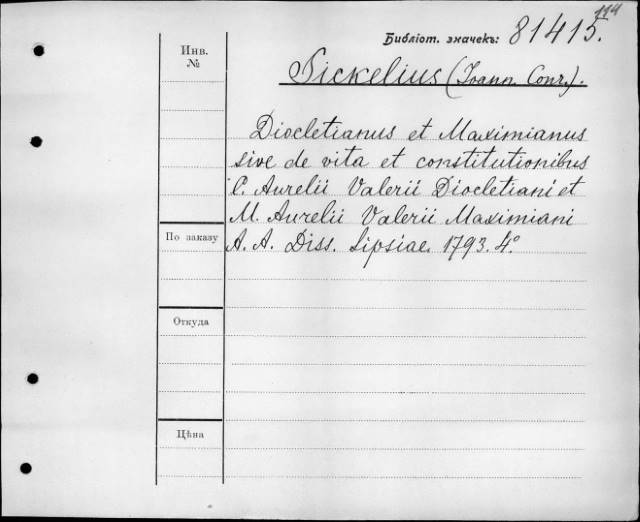 114
Библіот. значекъ: 81415.
Инв.
№
Sickelius (Joann. Conr.).
Diocletianus et Maximianus
sive de vita et constitutionibus
C. Aurelii Valerii Diocletiani et
M. Aurelii Valerii Maximiani
По заказу
A. A. Diss. Lipsiae. 1793. 4°
Откуда
Цѣна